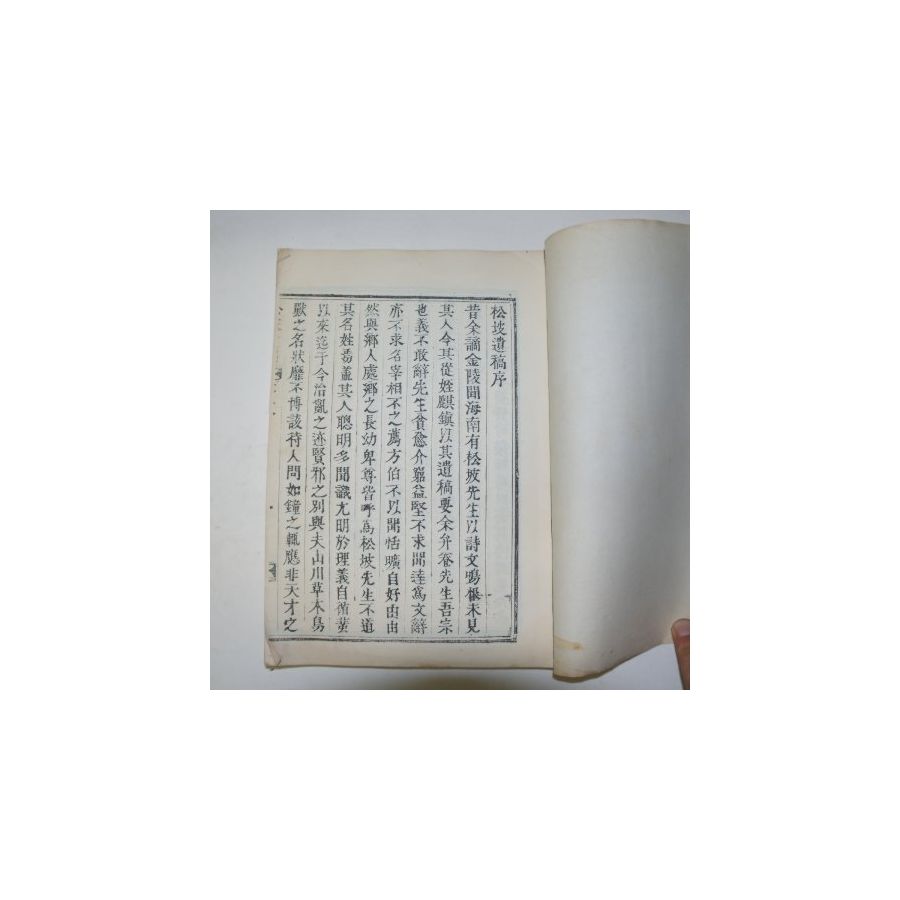 松坡遺稿序
昔余謫金陵聞海南有松坡先生以詩文鳴恨未見
其人今其從姪麒鎭以其遺稿要余弁卷先生吾宗
也義不敢辭先生貧愈介窮益堅不求聞達爲文辭
亦不求名宰相不之薦方伯不以聞恬曠自好由由
然與鄕人處鄕之長幼卑尊皆呼爲松坡先生不道
其名姓焉盖其人聰明多聞識尤明於理義自羲黃
以來迄于今治亂之迹賢邪之別與夫山川草木鳥
獸之名狀靡不博該待人問如鐘之輒應非天才之